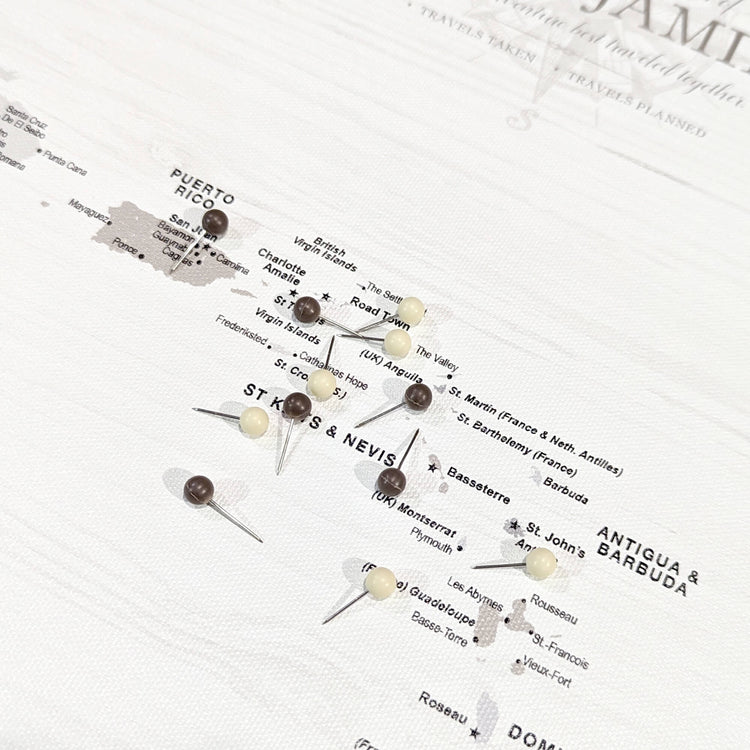 JAMI
best traveled together
• TRAVELS TAKEN
• TRAVELS PLANNED
S
Santa Cruz
De El Seibo
Punta Cana
PUERTO
RICO
Mayaguez
San Juan
Bayamon
Guaynabo
Caguas
Carolina
Ponce
British
Virgin Islands
Charlotte
Amalie
The Settl
Road Town
St T
Virgin Islands
Frederiksted
Catharinas Hope
St. Cro
The Valley
(UK) Anguilla
St. Martin (France & Neth. Antilles)
St. Barthelemy (France)
ST KITTS & NEVIS
Basseterre
Barbuda
(UK) Montserrat
Plymouth
St. John's
ANTIGUA &
BARBUDA
Guadeloupe
Les Abymes
Rousseau
Basse-Terre
St.-Francois
Vieux-Fort
Roseau
DOM